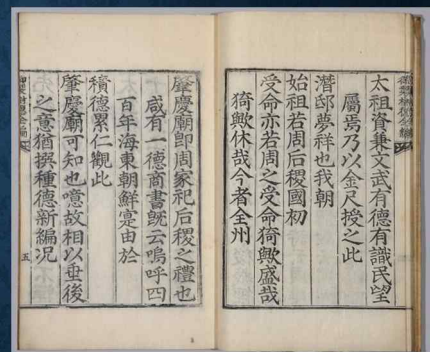 太祖資兼文武有德有識民望
屬焉乃以金尺授之此
潛邸夢祥也我朝
始祖若周后稷國初
受命亦若周之受命猗歟盛哉
猗歟休哉今者全州
肇慶廟卽周家祀后稷之禮也
咸有一德商書旣云嗚呼四
百年海東朝鮮寔由於
積德累仁觀此
肇慶廟可知也噫故相以垂後
之意猶撰種德新編况
五